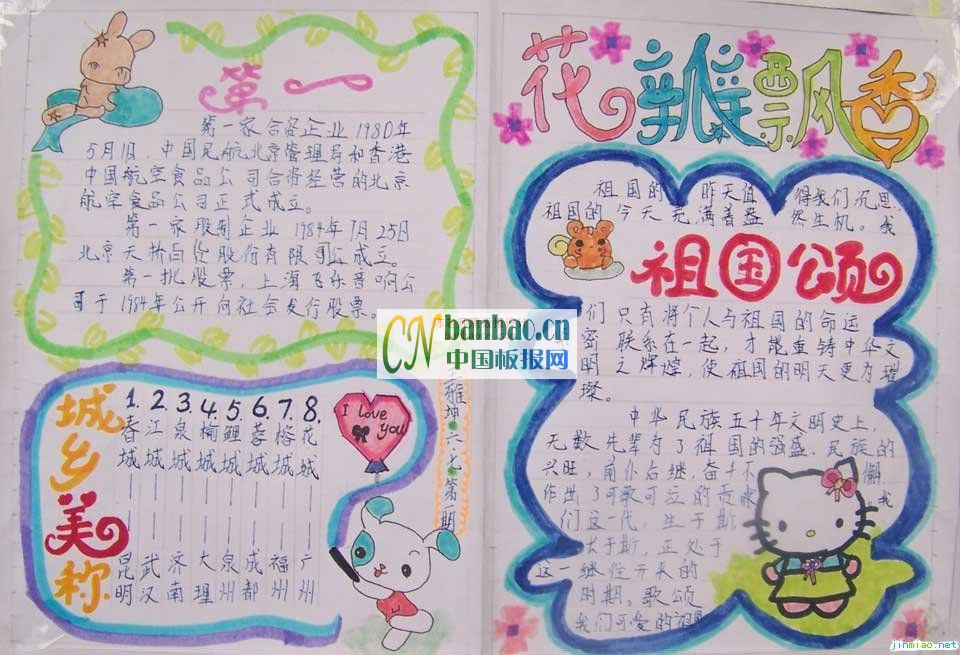 第一
第一家合资企业 1980年
5月1日，中国民航北京管理局和香港
中国航空食品公司合资经营的北京
航空食品公司正式成立。
第一家股制企业 1984年7月25日
北京天桥百货股份有限公司成立。
第一批股票，上海飞乐音响公
司于1984年公开向社会发行股票。
城乡美称
1.春城——昆明
2.江城——武汉
3.泉城——济南
4.榆城——大理
5.鲤城——泉州
6.蓉城——成都
7.榕城——福州
8.花城——广州
I love you
CN banbao.cn
中国板报网
花瓣飘香
祖国的 昨天值 得我们沉思
祖国的 今天充满着盎 然生机。我
祖国颂
们 只有将个人与祖国的命运
密 联系在一起，才能重铸中华文
明 之辉煌，使祖国的明天更为璀
璨。
中华民族五千年文明史上，
无数先辈为了祖国的强盛、民族的
兴旺，前仆后继，奋斗不 懈
作出了可歌可泣的贡献 。我
们这一代，生于斯
长于斯，正处于
这一继往开来的
时期。歌颂
我们可爱的祖国
jinmiao.net